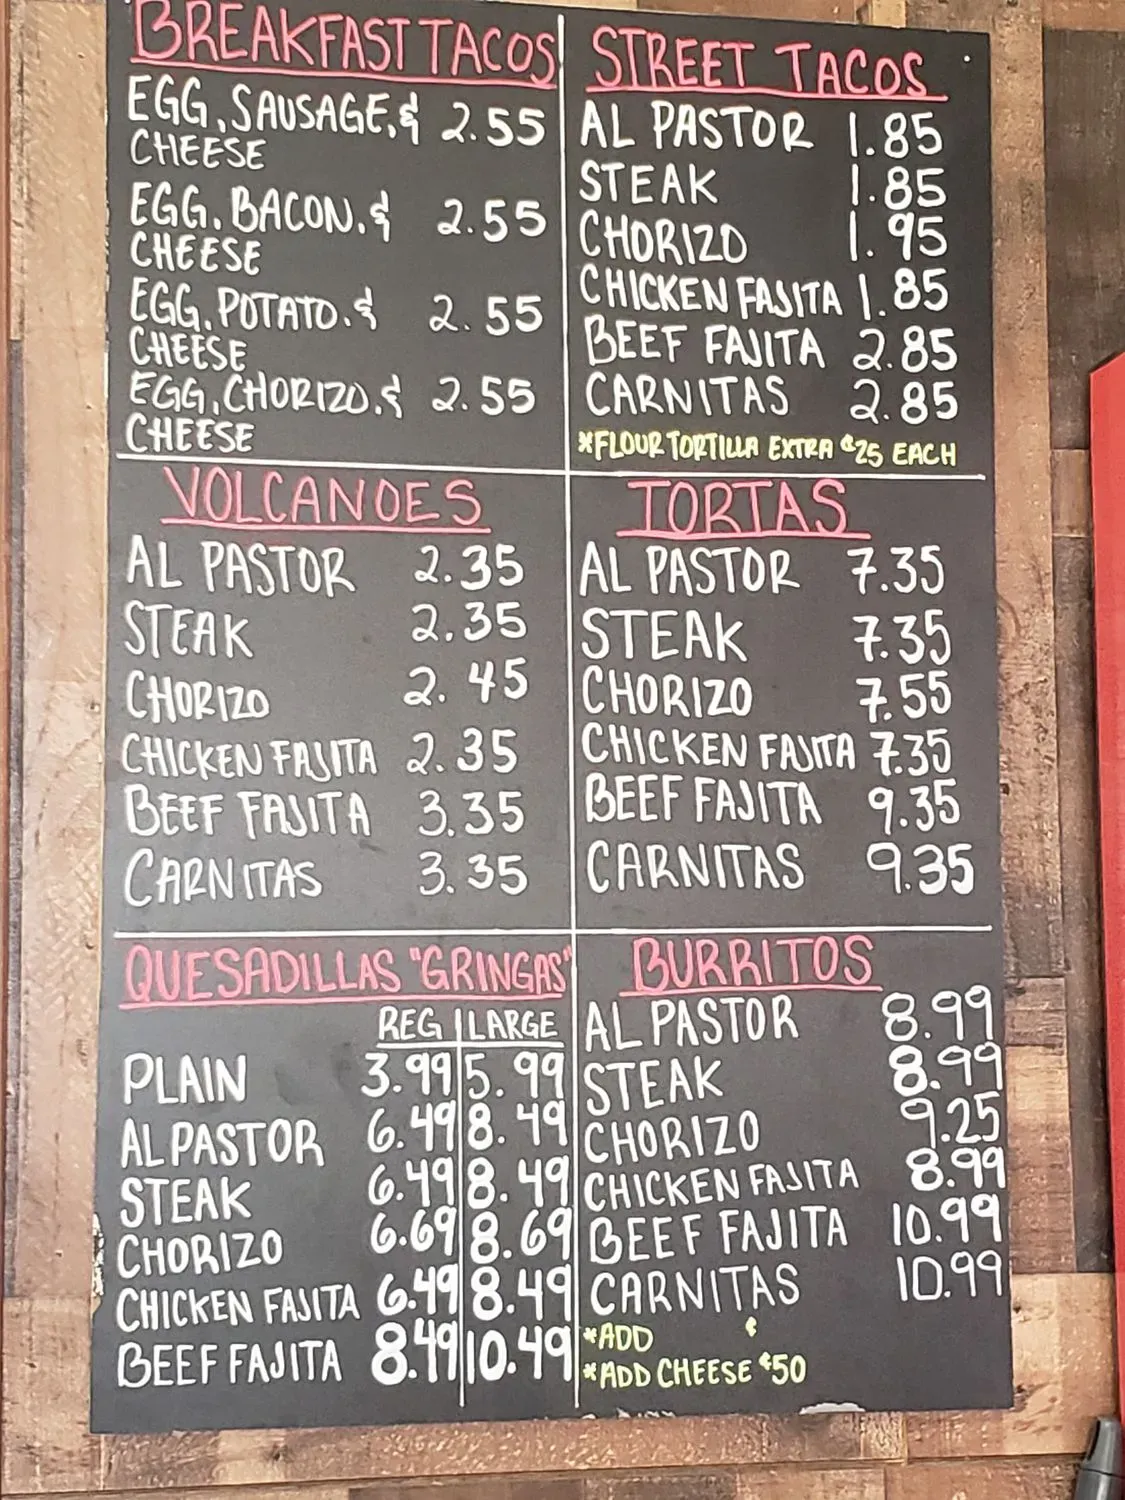 BREAKFAST TACOS
EGG, SAUSAGE, & 2.55
CHEESE
EGG, BACON, & 2.55
CHEESE
EGG, POTATO, & 2.55
CHEESE
EGG, CHORIZO, & 2.55
CHEESE
STREET TACOS
AL PASTOR 1.85
STEAK 1.85
CHORIZO 1.95
CHICKEN FAJITA 1.85
BEEF FAJITA 2.85
CARNITAS 2.85
*FLOUR TORTILLA EXTRA ¢25 EACH
VOLCANOES
AL PASTOR 2.35
STEAK 2.35
CHORIZO 2.45
CHICKEN FAJITA 2.35
BEEF FAJITA 3.35
CARNITAS 3.35
TORTAS
AL PASTOR 7.35
STEAK 7.35
CHORIZO 7.55
CHICKEN FAJITA 7.35
BEEF FAJITA 9.35
CARNITAS 9.35
QUESADILLAS "GRINGAS"
REG | LARGE
PLAIN 3.99 5.99
AL PASTOR 6.49 8.49
STEAK 6.49 8.49
CHORIZO 6.69 8.69
CHICKEN FAJITA 6.49 8.49
BEEF FAJITA 8.49 10.49
BURRITOS
AL PASTOR 8.99
STEAK 8.99
CHORIZO 9.25
CHICKEN FAJITA 8.99
BEEF FAJITA 10.99
CARNITAS 10.99
*ADD ¢
*ADD CHEESE ¢50